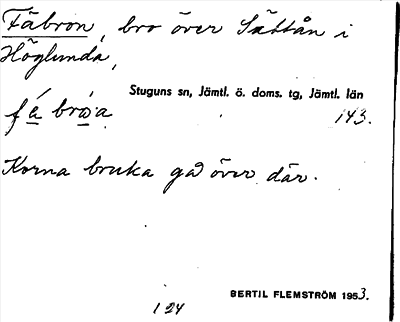 Fäbron, bro över Sättån i
Höglunda,
Stuguns sn, Jämtl. ö. doms. tg, Jämtl. län
143.
Korna bruka gå över där.
BERTIL FLEMSTRÖM 1953.
124